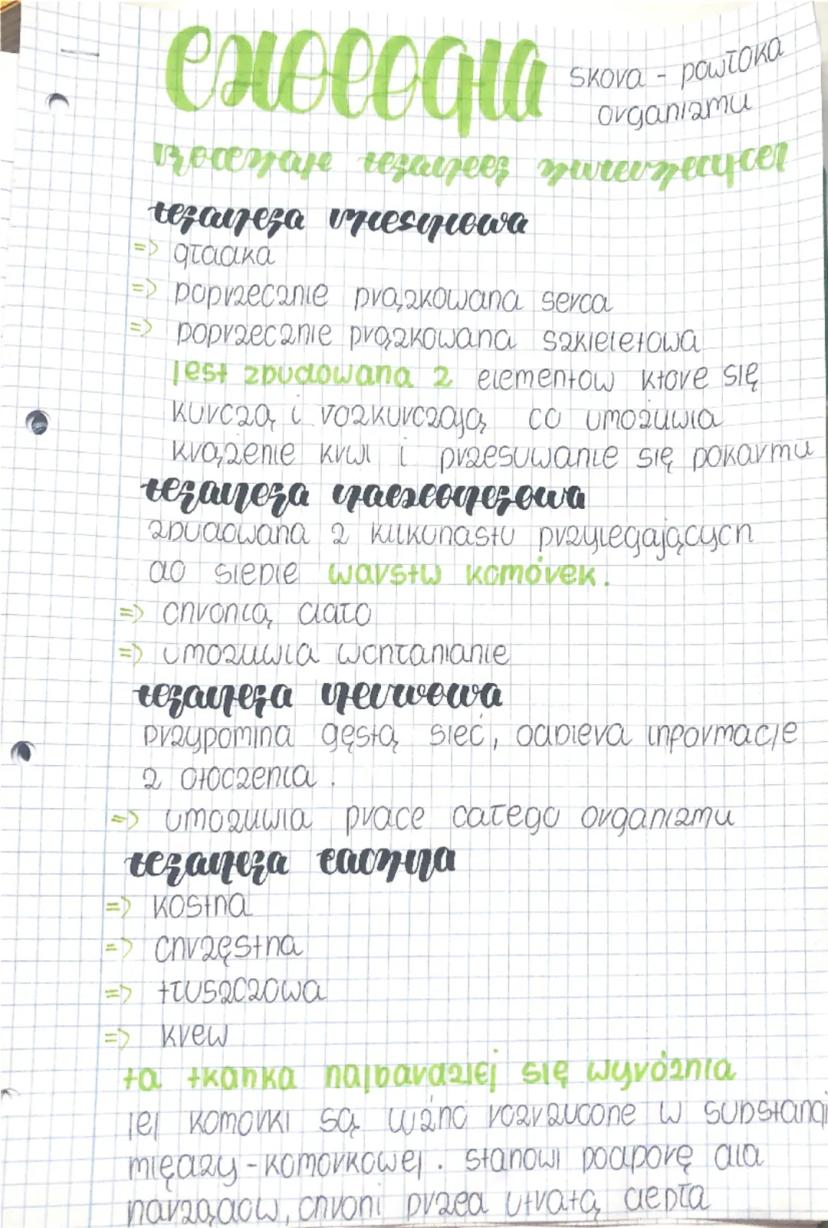 skóra - powłoka
organizmu
rodzaje tkanek zwierzęcych
tkanka mięśniowa
=> gładka
=> poprzecznie prążkowana serca
=> poprzecznie prążkowana szkieletowa
jest zbudowana z elementów które się
kurczą i rozkurczają, co umożliwia
krążenie krwi i przesuwanie się pokarmu
tkanka nabłonkowa
zbudowana z kilkunastu przylegających
do siebie warstw komórek.
=> chronią ciało
=> umożliwia wchłanianie
tkanka nerwowa
przypomina gęstą sieć, odbiera informacje
z otoczenia.
=> umożliwia prace całego organizmu
tkanka łączna
=> kostna
=> chrzęstna
=> tłuszczowa
=> krew
ta tkanka najbardziej się wyróżnia
jej komórki są luźno rozrzucone w substancji
między-komórkowej. stanowi podporę dla
narządów, chroni przed utratą ciepła